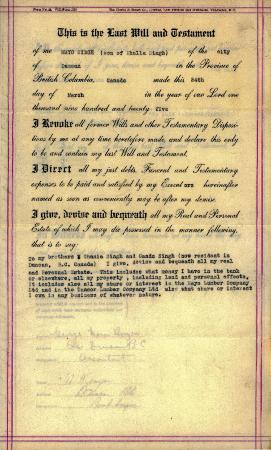 This is the Last Will and Testament
of me MAYO SINGH (son of Bhalla Singh) of the city
of Duncan in the Province of
British Columbia, Canada made this 24th
day of March in the year of our Lord one
thousand nine hundred and twenty five
I Revoke all former Wills and other Testamentary Disposi-
tions by me at any time heretofore made, and declare this only
to be and contain my last Will and Testament.
I Direct all my just debts, Funeral and Testamentary
expenses to be paid and satisfied by my Execut ors hereinafter
named as soon as conveniently may be after my demise.
I give, devise and bequeath all my Real and Personal
Estate of which I may die possessed in the manner following,
that is to say:
To my brothers Ghania Singh and Ganda Singh (now resident in
Duncan, B.C. Canada) I give, devise and bequeath all my real
and Personal Estate. This includes what money I have in the bank
or elsewhere, all my property, including land and personal effects,
It includes also all my share or interest in the Mayo Lumber Company
Ltd and in the Lumber Company Ltd also what share or interest
I own in any business of whatever nature.